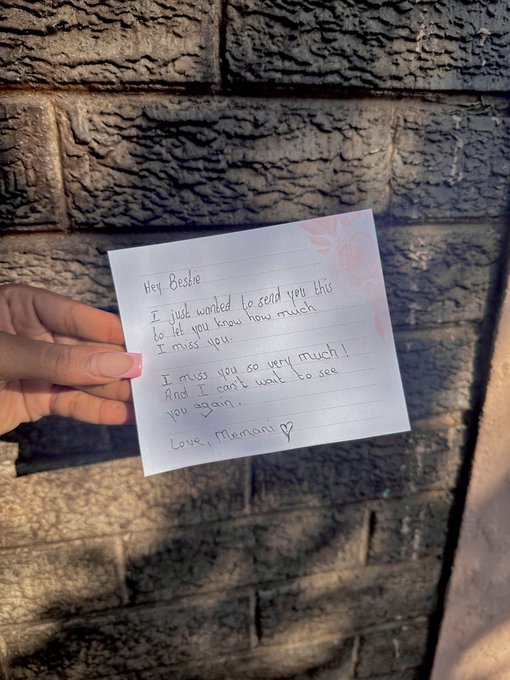 Hey Bestie
I just wanted to send you this
to let you know how much
I miss you.
I miss you so very much!
And I can't wait to see
you again.
Love, Memani ♡